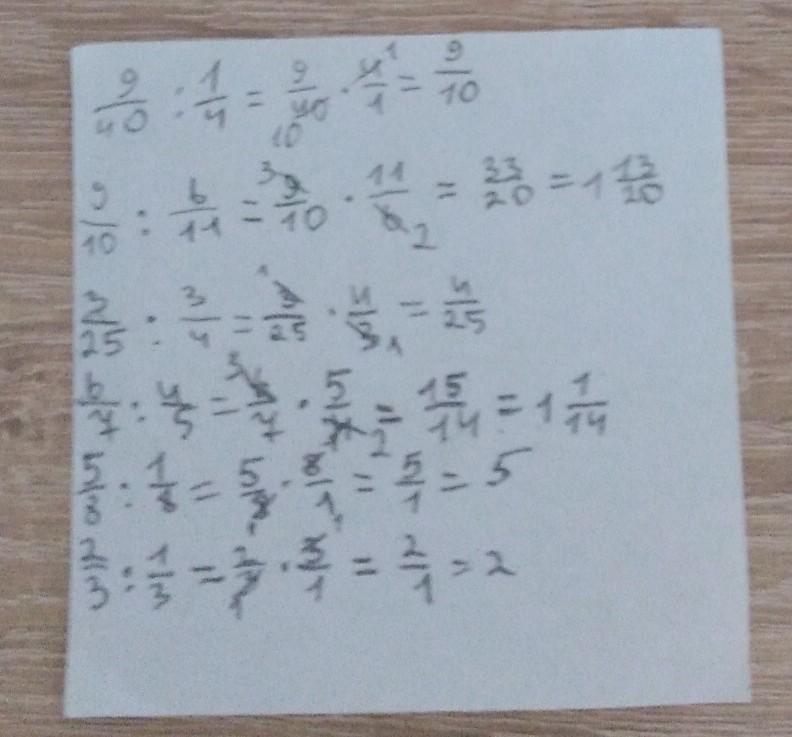 9/40 : 1/4 = 9/40 10 · 4/1 1 = 9/10
9/10 : 6/11 = 3 9/10 · 11/6 2 = 33/20 = 1 13/20
3/25 : 3/4 = 1 3/25 · 4/3 1 = 4/25
6/7 : 4/5 = 3 6/7 · 5/4 2 = 15/14 = 1 1/14
5/8 : 1/8 = 5/8 1 · 8/1 1 = 5/1 = 5
2/3 : 1/3 = 2/3 1 · 3/1 = 2/1 = 2